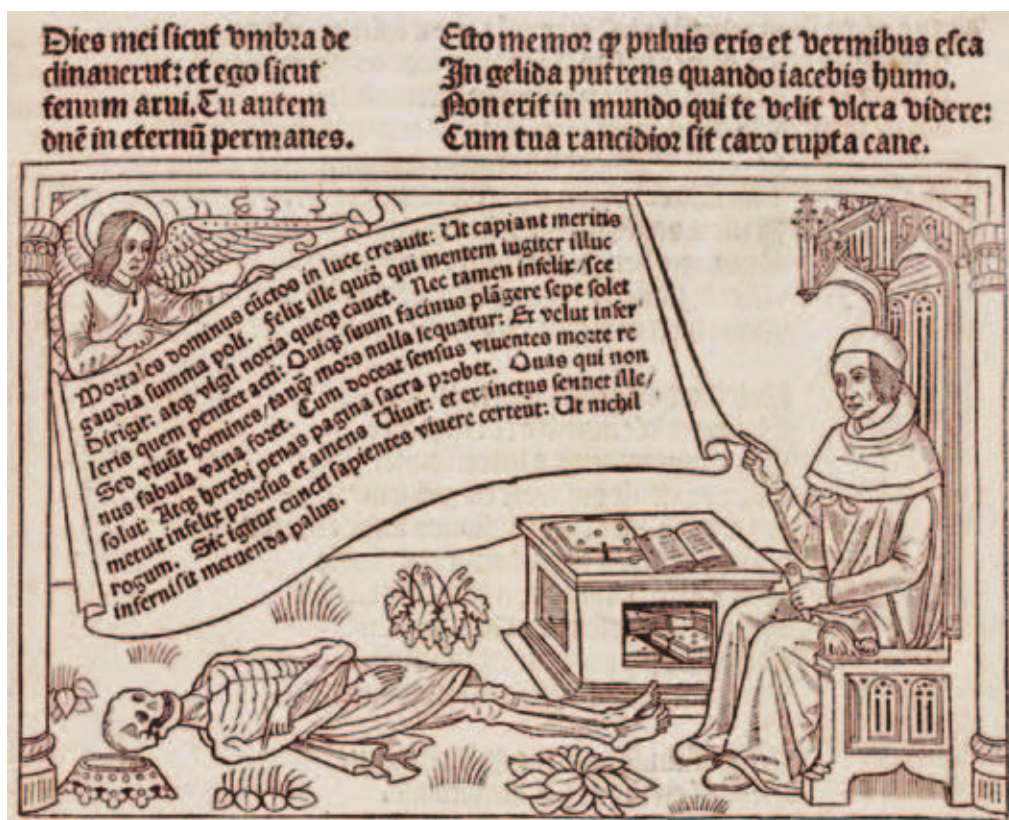 Dies mei sicut vmbra de
clinauerũt: et ego sicut
fenum arui. Tu autem
dñe in eternũ permanes.
Esto memor ꝙ puluis eris et vermibus esca
In gelida putrens quando iacebis humo.
Non erit in mundo qui te velit vltra videre:
Cum tua rancidior sit caro rupta cane.
Mortales dominus cũctos in luce creauit: Ut capiant meritis
gaudia summa poli. Felix ille quidẽ qui mentem iugiter illuc
Dirigit: atqꝫ vigil noxia queqꝫ cauet. Nec tamen infelix/sce
leris quem penitet acti: Quiqꝫ suum facinus plãgere sepe solet
Sed viuũt homines/tanꝙ mors nulla sequatur: Et velut infer
nus fabula vana foret. Cum doceat sensus viuentes morte re
solui: Atqꝫ herebi penas pagina sacra probet. Quas qui non
metuit infelix prorsus et amens Viuit: et extinctus sentiet ille/
rogum. Sic igitur cuncti sapientes viuere certent: Ut nichil
inferni sit metuenda palus.